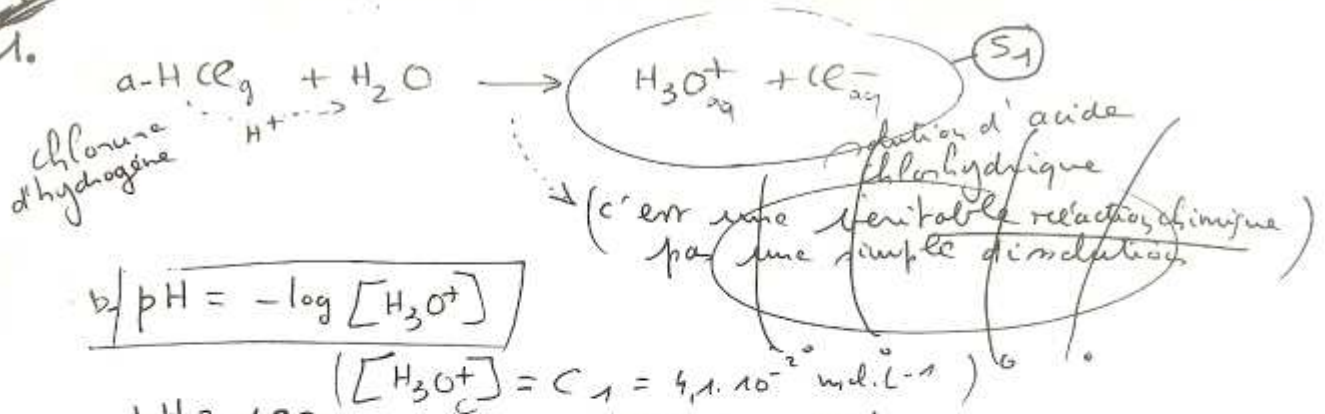 1.
a- HCl_g + H₂O ⟶ H₃O⁺_aq + Cl⁻_aq S₁
chlorure
d'hydrogène
H⁺
solution d'acide
chlorhydrique
(c'est une véritable réaction chimique
pas une simple dissolution)
b- pH = -log [H₃O⁺]
([H₃O⁺] = C₁ = 4,1.10⁻² mol.L⁻¹)